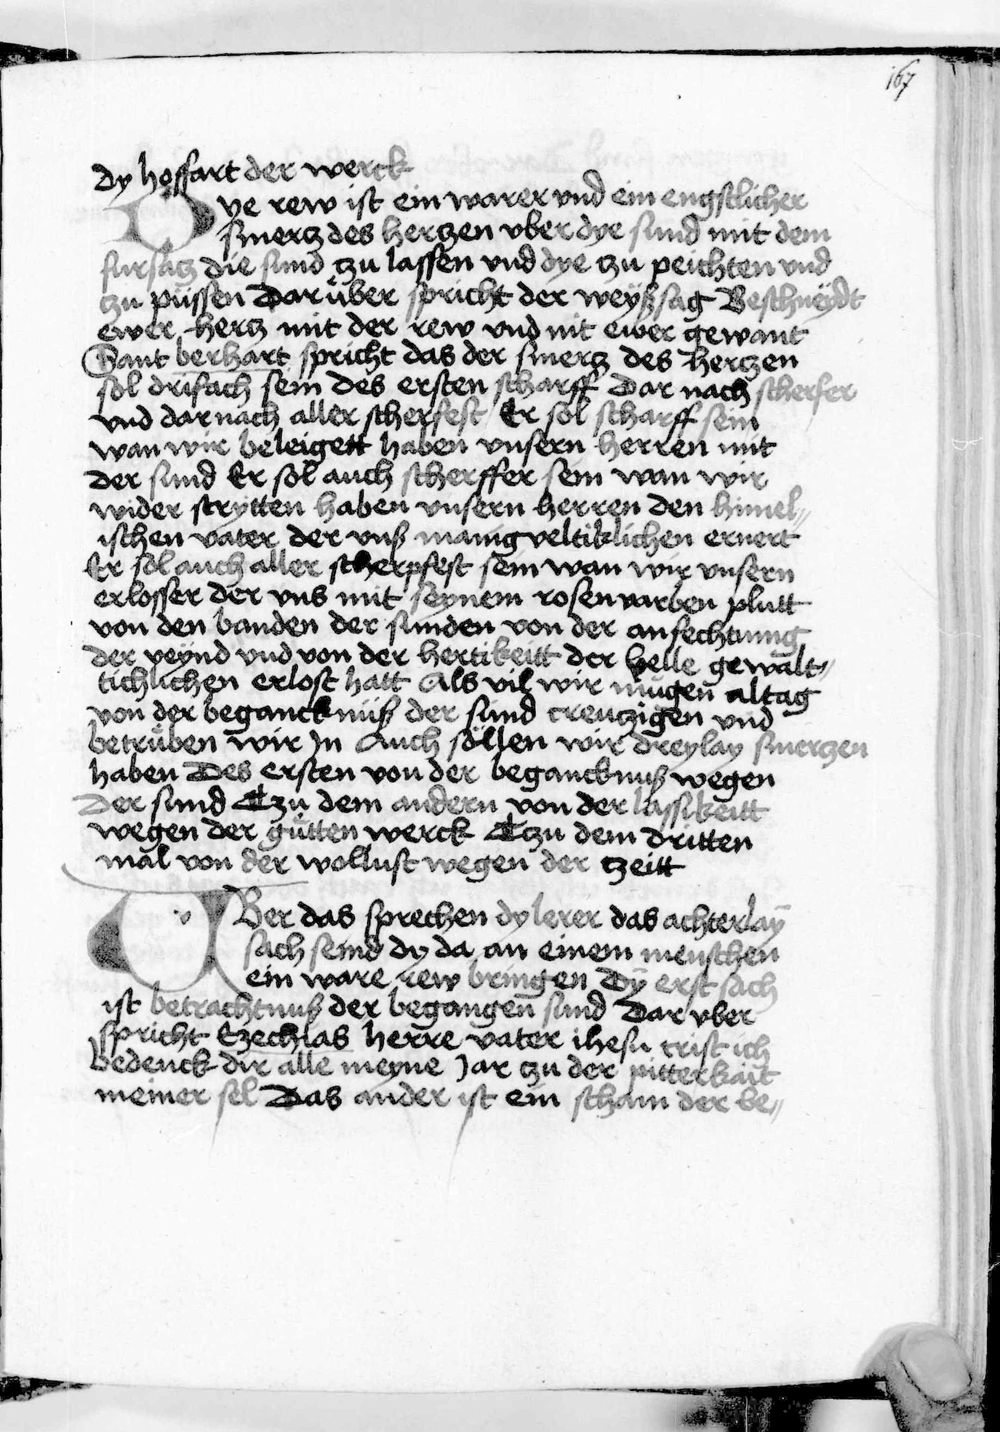 167
Dy hoffart der werck
Dye rew ist ein warer vnd ein engstlicher
smertz des hertzen vber dye sund mit dem
fursatz die sund tzu lassen vnd dye tzu peichten vnd
tzu püssen Darüber spricht der weyßsag Beschneydt
ewer hertz mit der rew vnd nit ewer gewant
Sant berhart spricht das der smertz des hertzen
sol drifach sein des ersten scharff Dar nach scherfer
vnd dar nach aller scherfest Er sol scharff sein
wan wir beleigett haben vnsern herren mit
der sund Er sol auch scherffer sein wan wir
wider strytten haben vnsern herren den himel„
ischen vater der vnß manigveltiklichen ernert
Er sol auch aller scherpfest sein wan wir vnsern
erlosser der vns mit seynem rosenvarben plutt
von den banden der sunden von der anfechtung
der veynd vnd von der hertikeitt der helle gewalt„
tichlichen erlost hatt Als vil wir mugen altag
von der begancknuß der sund creutzigen vnd
betrüben wir Jn Auch söllen wir dreylay smertzen
haben Des ersten von der begancknuß wegen
Der sund Tzu dem andern von der lassikeitt
wegen der gutten werck Tzu dem dritten
mal von der wollust wegen der tzeitt
VBer das sprechen dy lerer das achterlay
sach seind dy da an einem menschen
ein ware rew bringen Dy erst sach
ist betrachtnuß der begangen sund Dar vber
spricht Ezechias herre vater ihesu crist ich
bedenck dir alle meyne Jar tzu der pitterkait
meiner sel Das ander ist ein scham der be„